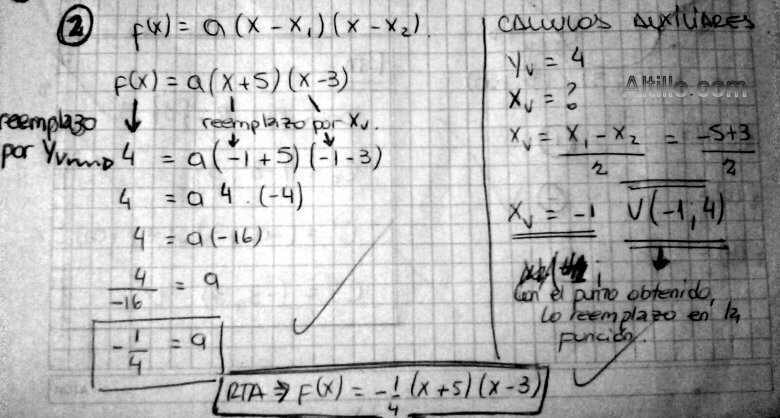 2 f(x) = a (x - x₁) (x - x₂).
F(x) = a (x+5) (x-3)
reemplazo por Yv
reemplazo por Xv.
4 = a (-1+5) (-1-3)
4 = a 4 . (-4)
4 = a (-16)
4/-16 = a
-1/4 = a
RTA ⇒ F(x) = -1/4 (x+5) (x-3)
CALCULOS AUXILIARES
Yv = 4
Altillo.com
Xv = ?
Xv = x₁ - x₂/2 = -5+3/2
Xv = -1 V(-1;4)
Con el punto obtenido,
lo reemplazo en la
función.